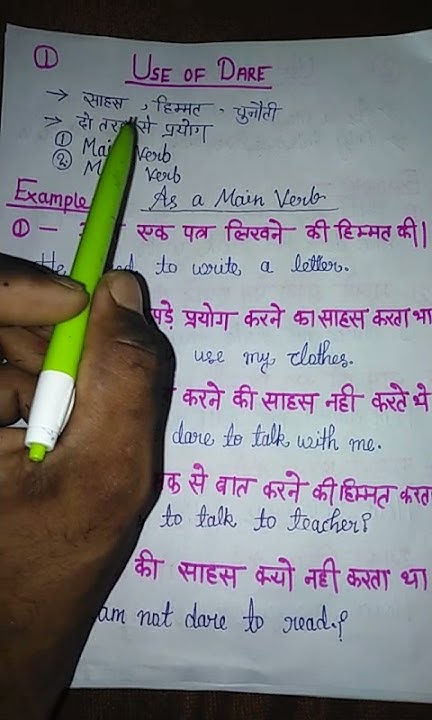 ①
USE OF DARE
→ साहस, हिम्मत - चुनौती
→ दो तरह से प्रयोग
① Main Verb
② Verb
Example As a Main Verb
① — एक पत्र लिखने की हिम्मत की।
to write a letter.
प्रयोग करने का साहस करता था
use my clothes.
करने की साहस नही करते थे
dare to talk with me.
से बात करने की हिम्मत करता
to talk to teacher?
की साहस क्यो नही करता था
am not dare to read.?